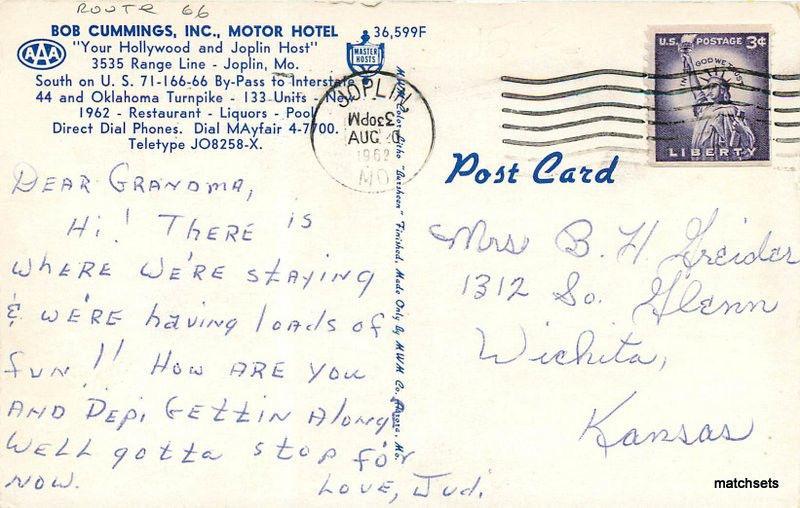 ROUTE 66
BOB CUMMINGS, INC., MOTOR HOTEL
36,599F
AAA
"Your Hollywood and Joplin Host"
3535 Range Line - Joplin, Mo.
South on U. S. 71-166-66 By-Pass to Interstate
44 and Oklahoma Turnpike - 133 Units - New
1962 - Restaurant - Liquors - Pool
Direct Dial Phones. Dial MAyfair 4-7700.
Teletype JO8258-X.
MASTER
HOSTS
JOPLIN
330PM
AUG
1962
MO
U.S. POSTAGE 3¢
IN GOD WE TRUST
LIBERTY
Post Card
Color Litho "Sursheen" Finished. Made Only By MWM Co., Aurora, Mo.
DEAR GRANDMA,
Hi! THERE is
wHERE WE'RE staying
& wE'RE having loads of
fun!! How ARE you
AND Depi GETTIN Along
WELL gotta stop for
NOW.
LOVE, Jud.
Mrs B. H. Greider
1312 So. Glenn
Wichita,
Kansas
matchsets